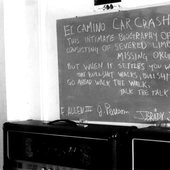 EL CAMINO CAR CRASH
THIS INTIMATE BIOGRAPHY OF
CONSISTING OF SEVERED LIMBS
MISSING ORG
BUT WHEN IT SERVES YOU W
THE BULLSHIT WALKS, BULLSHI
GO AHEAD WALK THE WALK,
TALK THE TALK
E. ALLEN III